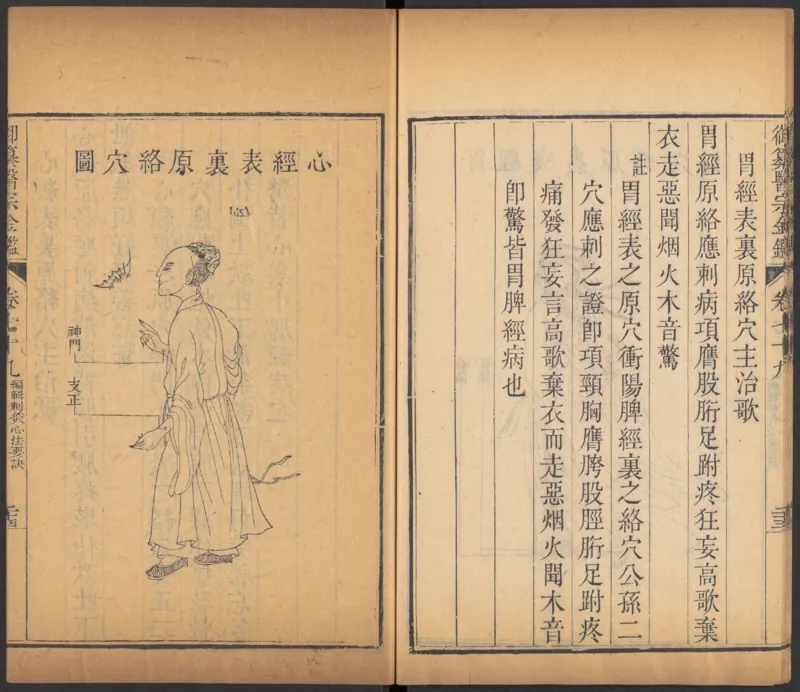 胃經表裏原絡穴主治歌
胃經原絡應刺病項膺股胻足跗疼狂妄高歌棄
衣走惡聞烟火木音驚
註
胃經表之原穴衝陽脾經裏之絡穴公孫二
穴應刺之證卽項頸胸膺胯股脛胻足跗疼
痛發狂妄言高歌棄衣而走惡烟火聞木音
卽驚皆胃脾經病也
御纂醫宗金鑑
卷七十九
心經表裏原絡穴圖
神門
支正
御纂醫宗金鑑
卷七十九
編輯刺灸心法要訣